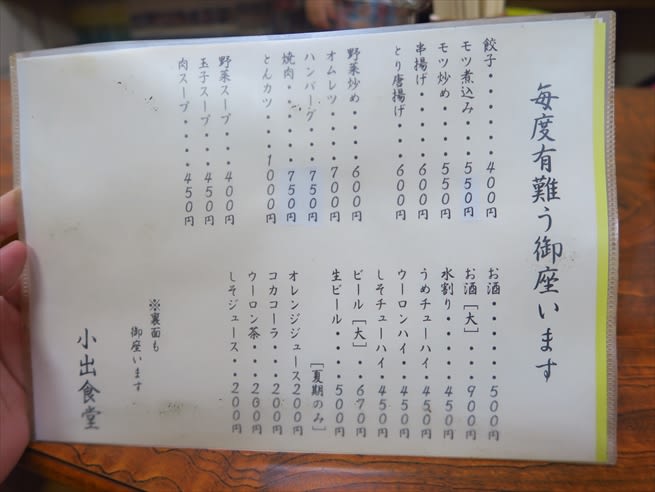 毎度有難う御座います
餃子・・・・・・・400円
モツ煮込み・・・・550円
モツ炒め・・・・・550円
串揚げ・・・・・・600円
とり唐揚げ・・・・600円
野菜炒め・・・・・600円
オムレツ・・・・・700円
ハンバーグ・・・・750円
焼肉・・・・・・・750円
とんカツ・・・・1000円
野菜スープ・・・・400円
玉子スープ・・・・450円
肉スープ・・・・・450円
お酒・・・・・・・500円
お酒［大］・・・・900円
水割り・・・・・・450円
うめチューハイ・・450円
ウーロンハイ・・・450円
しそチューハイ・・450円
ビール［大］・・・670円
生ビール・・・・・500円
［夏期のみ］
オレンジジュース200円
コカコーラ・・・・200円
ウーロン茶・・・・200円
しそジュース・・・200円
※裏面も
御座います
小出食堂